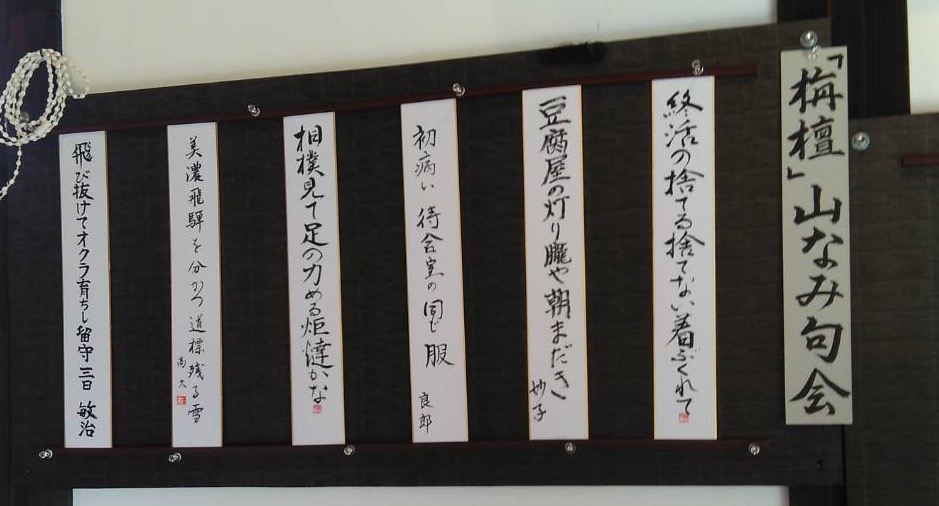 「栴檀」山なみ句会
終活の捨てる捨てない着ぶくれて
豆腐屋の灯り朧や朝まだき 妙子
初病い待合室の同じ服 良郎
相撲見て足の力める炬燵かな
美濃飛騨を分かつ道標残る雪 尚久
飛び抜けてオクラ育ちし留守三日 敏治